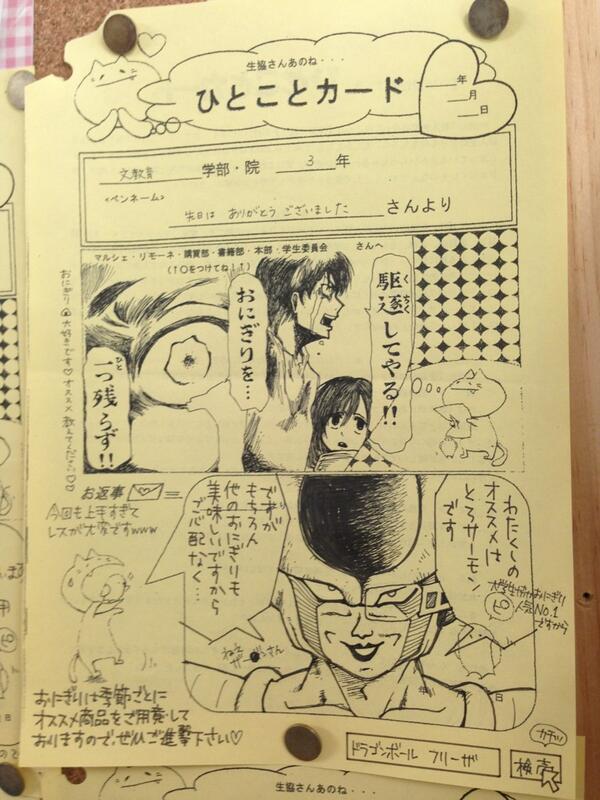 生協さんあのね・・・
ひとことカード
年
月
日
文教育 学部・院 3 年
<ペンネーム>
先日は ありがとう ございました さんより
マルシェ・リモーネ・購買部・書籍部・本部・学生委員会 さんへ
(↑○をつけてね!↑)
駆逐してやる!!
くちく
おにぎりを…
一つ残らず!!
ひと
おにぎり大好きです♡オススメ教えてください♡♡
お返事
今回も上手すぎて
レスが大変ですwww
わたくしの
オススメは
とろサーモン
です
大学生協おにぎり
人気No.1
ですから
ですが
もちろん
他のおにぎりも
美味しいですから
ご心配なく…
ねえ
ザーボンさん
年
月
日
おにぎりは季節ごとに
オススメ商品をご用意して
おりますので、ぜひご進撃下さい♡
ドラゴンボール フリーザ
検索
カチッ
生協さんあのね・・・